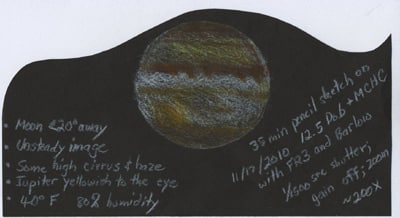 • Moon 20° away
• Unsteady image
• Some high cirrus & haze
• Jupiter yellowish to the eye
• 40° F 80% humidity
35 min pencil sketch on
11/17/2010 12.5 Dob + MCHC
with FR3 and Barlow
1/500 sec shutter;
gain off; zoom
~200X